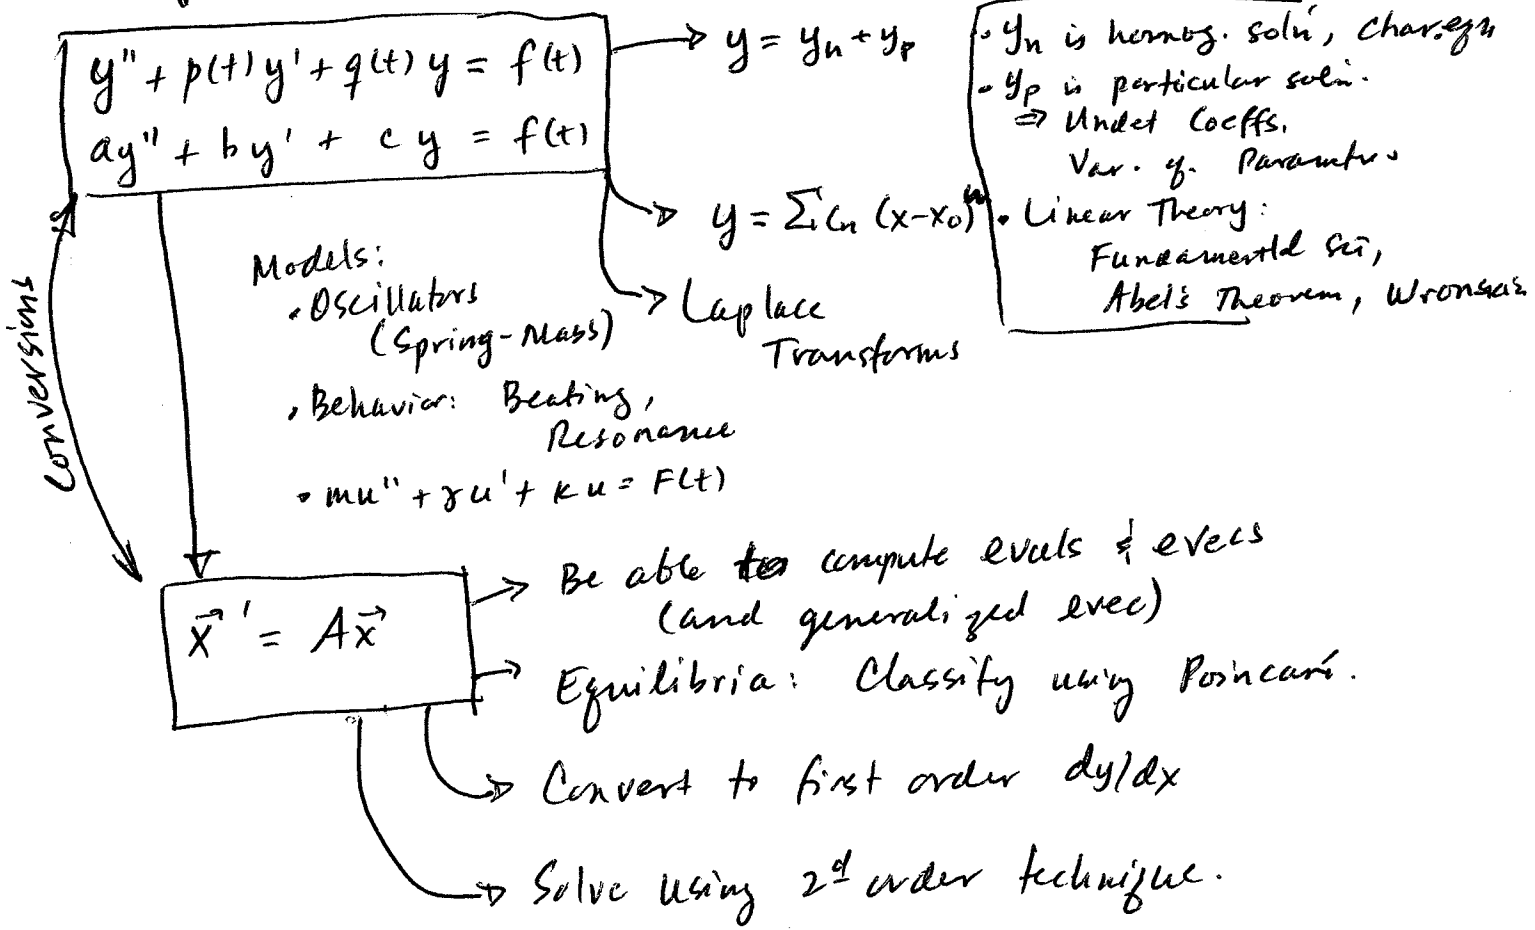 y" + p(t) y' + q(t) y = f(t)
ay" + by' + cy = f(t)
y = yₕ + yₚ
• yₕ is homog. soln, Char. eqn
• yₚ is particular soln.
⇒ Undet Coeffs.
Var. of. Parameters
• Linear Theory:
Fundamental Set,
Abel's Theorem, Wronskian
y = Σ Cₙ (x-x₀)ⁿ
Laplace
Transforms
Conversions
Models:
• Oscillators
(Spring-Mass)
• Behavior: Beating,
Resonance
• mu" + γu' + ku = F(t)
x⃗' = Ax⃗
Be able to compute evals & evecs
(and generalized evec)
Equilibria: Classify using Poincaré.
Convert to first order dy/dx
Solve using 2ᵈ order technique.